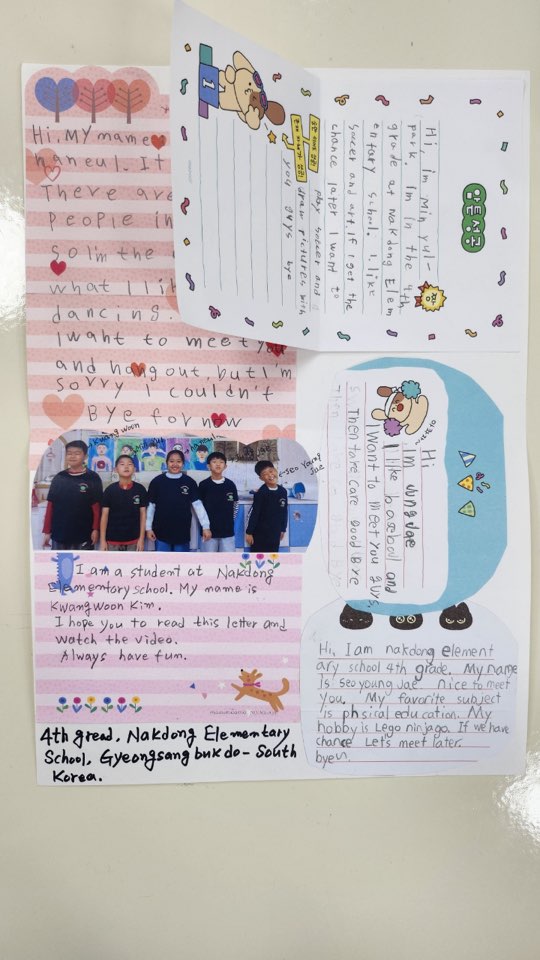 Hi. My mame
haneul. It
There are
people in
so Im the
what I li
dancing.
I want to meet you
and hang out, but I'm
sorry I couldn't
Bye for now
암튼성공
짱
Hi, im Min yul-
park. Im in the 4th
grade at Nakdong Elem
entary school. I like
soccer and art. If I get the
chance later I want to
play soccer and
draw pictures with
you guys bye
Hi
I'm Jung Jae
I like baseball and
I want to meet you guys.
Then take care Good Bye
Kwang woon
Seo Young
Jae
I am a student at Nakdong
Elementary school. My name is
Kwangwoon Kim.
I hope you to read this letter and
watch the video.
Always have fun.
Hi, I am nakdong element
ary school 4th grade. My name
is seo young Jae. nice to meet
you. My favorite subject
is phsiral education. My
hobby is Lego ninjago. If we have
chance Let's meet later.
byeu.
4th gread, Nakdong Elementary
School, Gyeongsang buk do - South
Korea.